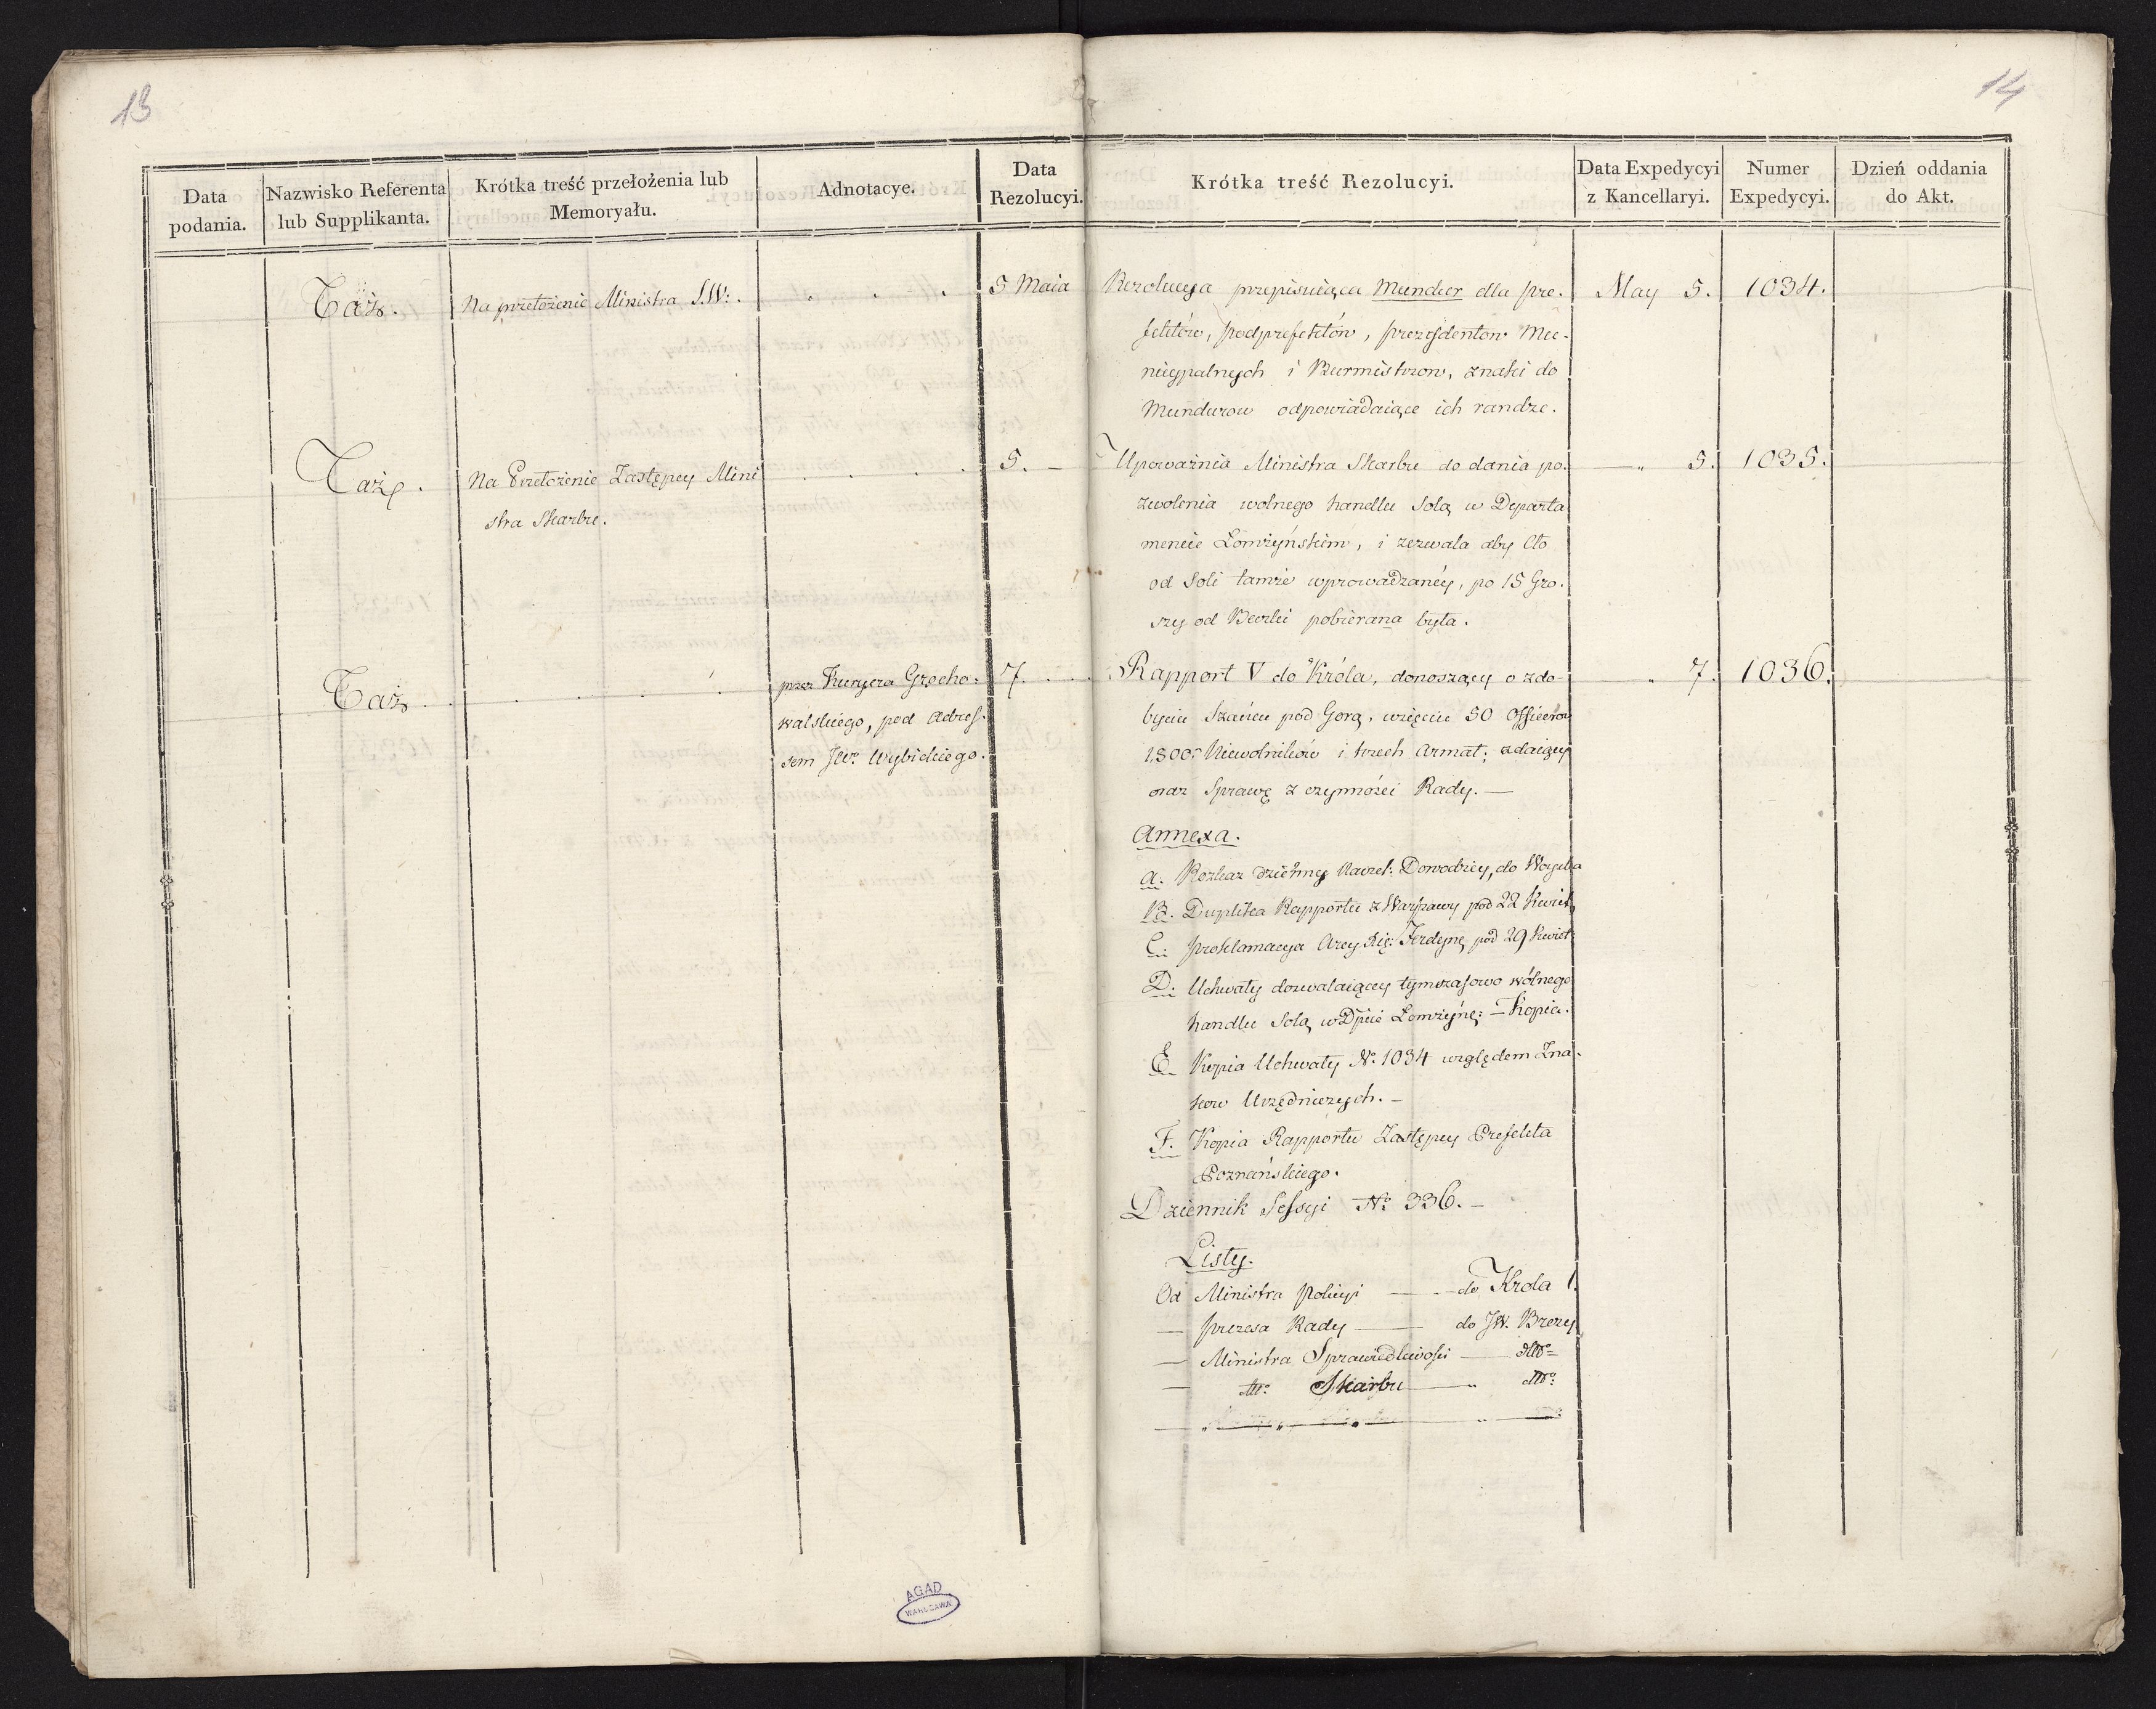 13
14
Data podania.
Nazwisko Referenta lub Supplikanta.
Krótka treść przełożenia lub Memoryału.
Adnotacye.
Data Rezolucyi.
Krótka treść Rezolucyi.
Data Expedycyi z Kancellaryi.
Numer Expedycyi.
Dzień oddania do Akt.
Taż.
Na przełożenie Ministra S.W:.
5 Maia
Rezolucya przepisuiąca Mundur dla pre-
May 5.
1034.
fektów, podprefektów, prezydentow Mu-
nicypalnych i Burmistrzow, znaki do
Mundurow odpowiadaiące ich randze.
Taż.
Na Przełożenie Zastępcy Mini
stra Skarbu.
5. —
Upoważnia Ministra Skarbu do dania po-
— „ 5.
1035.
zwolenia wolnego handlu Solą w Departa
mencie Łomżyńskim, i zezwala aby Cło
od Soli tamże wprowadzanéy, po 15 Gro-
szy od Beczki pobierana była.
Taż
przez Kuryera Grocho-
walskiego, pod Adres-
sem JW. Wybickiego.
7.
Rapport V do Króla, donoszący o zdo-
„ 7.
1036.
byciu Szańcu pod Gorą, wzięciu 50 Officerow
1,800 Niewolników i trzech Armat; zdaiący
oraz Sprawę z czynności Rady. —
Annexa.
A. Rozkaz dzienny Naczel: Dowodzcy, do Woyska
B. Duplika Rapportu z Warszawy pod 22 Kwiet:
C. Proklamacya Arcy Xię: Ferdyn: pod 29 Kwiet:
D. Uchwały dozwalaiącey tymczasowo wólnego
handlu Solą w Dpcie Łomżyń: — Kopia.
E. Kopia Uchwały No. 1034 względem Zna-
kow Urzędniczych. —
F. Kopia Rapportu Zastępcy Prefekta
Poznańskiego.
Dziennik Sessyi No. 336. —
Listy.
Od Ministra Policyi — do Krola 1.
— Prezesa Rady — do JW. Brezy
— Ministra Sprawiedliwości — dtto
— dtto: Skarbu — „ dtto:
AGAD
WARSZAWA